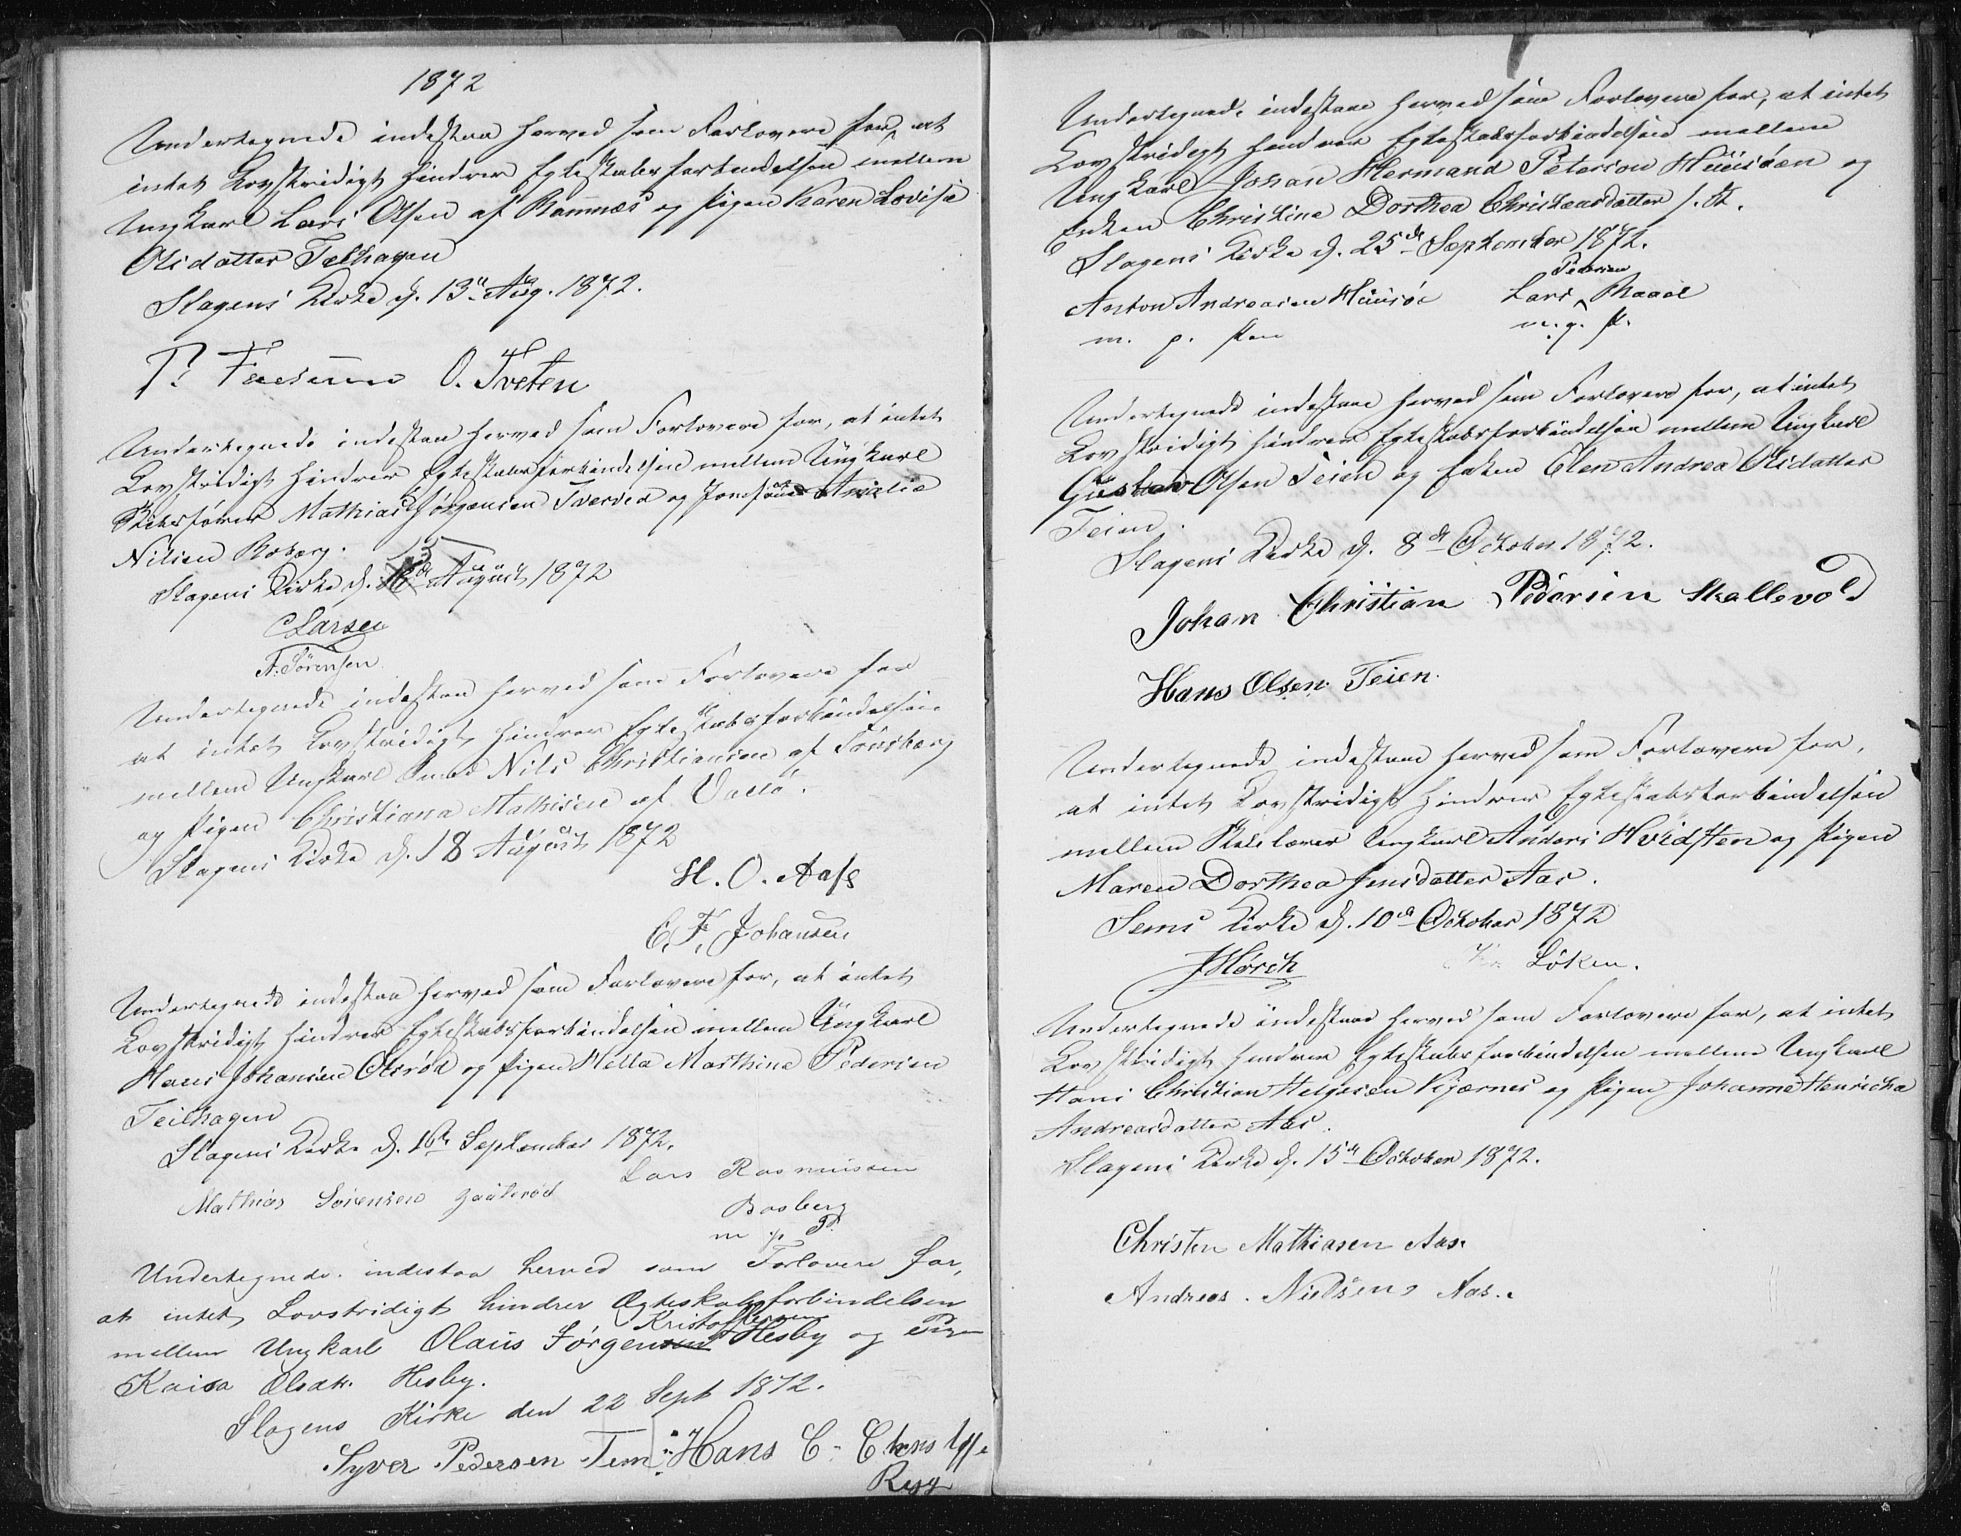 1872
Undertegnede indestaa herved som Forlovere for, at
intet Lovstridigt hindrer Egteskabsforbindelsen mellem
Ungkarl Lars Olsen af Ramnæs og Pigen Karen Lovise
Olsdatter Telhagen
Slagens Kirke d. 13de Aug. 1872.
O. Tveten
Undertegnede indestaa herved som Forlovere for, at intet
Lovstridigt hindrer Egteskabsforbindelsen mellem Ungkarl
Skibsfører Mathias Jørgensen Tverved og Amalie
Nilsen Roberg.
Slagens Kirke d. 15 August 1872
C Larsen
A. Sørensen
Undertegnede indestaa herved som Forlovere for
at intet Lovstridigt hindrer Egteskabsforbindelsen
mellem Ungkarl Nils Christiansen af Tønsberg
og Pigen Christiana Mathisen af Valø.
Slagens Kirke d. 18 August 1872
H. O. Aass
C. F. Johansen
Undertegnede indestaa herved som Forlovere for, at intet
Lovstridigt hindrer Egteskabsforbindelsen mellem Ungkarl
Hans Johansen Olsrød og Pigen Hella Mathine Pedersen
Teilhagen
Slagens Kirke d. 16de September 1872.
Lars Rasmussen
Mathias Sørensen
Basberg
m p P.
Undertegnede indestaa herved som Forlovere for,
at intet Lovstridigt hindrer Ægteskabsforbindelsen
Kristoffersen
mellem Ungkarl Olaus Jørgensen Hesby og Pigen
Kaisa Olsdtr. Hesby.
Slagens Kirke den 22 Sept 1872.
Syver Pedersen Hans C.
Undertegnede indestaa herved som Forlovere for, at intet
Lovstridigt hindrer Egteskabsforbindelsen mellem
Ungkarl Johan Hermand Peterson Huusøen og
Enken Christine Dorthea Christensdatter s. St.
Slagens Kirke d. 25de September 1872.
Pedersen
Anton Andreasen Huusøe Lars
m. p. Pen m. p. P.
Undertegnede indestaa herved som Forlovere for, at intet
Lovstridigt hindrer Egteskabsforbindelsen mellem Ungkarl
Gustav Olsen Teien og Enken Elen Andrea Olsdatter
Teien.
Slagens Kirke d. 8de October 1872.
Johan Christian Pedersen Skallevold
Hans Olsen Teien.
Undertegnede indestaa herved som Forlovere for,
at intet Lovstridigt hindrer Egteskabsforbindelsen
mellem Skolelærer Ungkarl Anders Hvidsten og Pigen
Maren Dorthea Jensdatter Aas.
Sems Kirke d. 10de October 1872
J Hørsch Løken.
Undertegnede indestaa herved som Forlovere for, at intet
Lovstridigt hindrer Egteskabsforbindelsen mellem Ungkarl
Hans Christian Helgesen Kjærnes og Pigen Johanne Henricha
Andreasdatter Aas.
Slagens Kirke d. 15de October 1872.
Christen Mathiasen Aas.
Andreas Nielsen Aas.